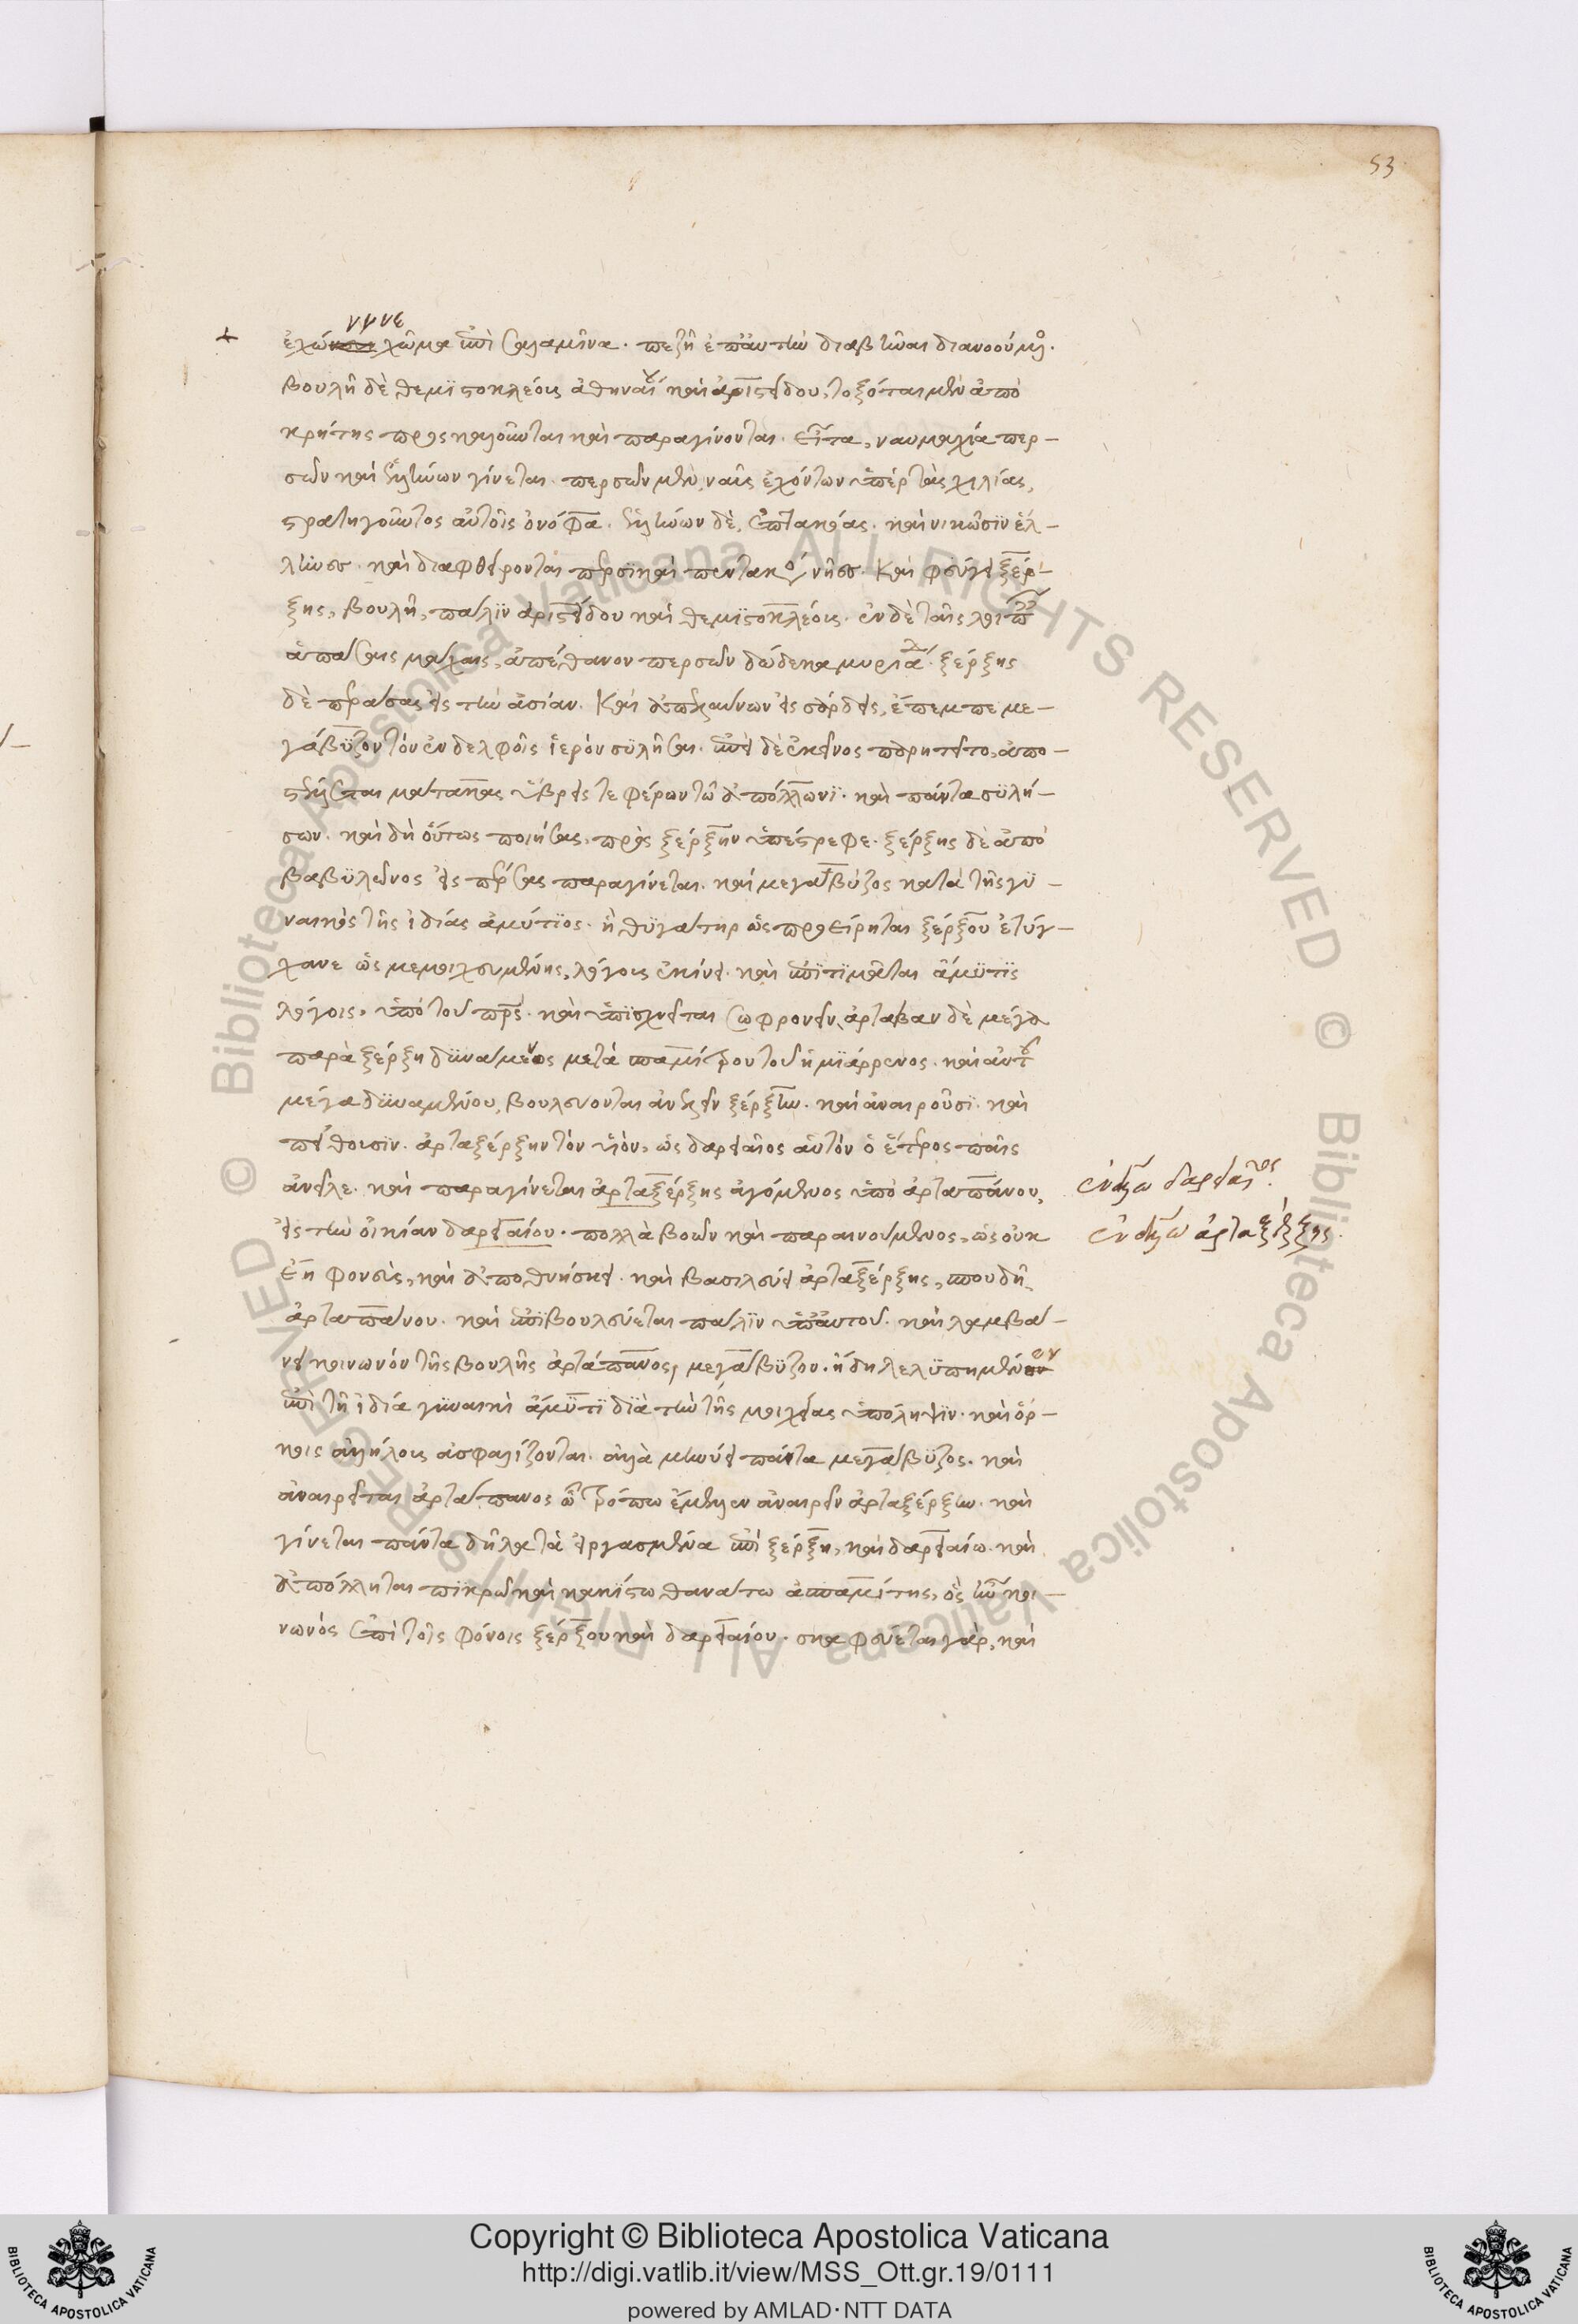 53
ννυε
ἐχώννυε χῶμα ἐπὶ σαλαμῖνα. πεζῇ ἐπ' αὐτὴν διαβῆναι διανοούμενος.
βουλῇ δὲ θεμιστοκλέους ἀθηναίου καὶ ἀριστείδου, τοξόται μὲν ἀπὸ
κρήτης προσκαλοῦνται καὶ παραγίνονται. εἶτα, ναυμαχία περ-
σῶν καὶ ἑλλήνων γίνεται. περσῶν μὲν, ναῦς ἐχόντων ὑπὲρ τὰς χιλίας,
στρατηγοῦντος αὐτοῖς ὀνόφα. ἑλλήνων δὲ, ἑπτακοσίας. καὶ νικῶσιν ἕλ-
ληνες. καὶ διαφθείρονται περσικαὶ πεντακόσιαι νῆες. καὶ φεύγει ξέρ-
ξης, βουλῇ, πάλιν ἀριστείδου καὶ θεμιστοκλέους. ἐν δὲ ταῖς λοιπαῖς
ἁπάσαις μάχαις, ἀπέθανον περσῶν δώδεκα μυριάδες. ξέρξης
δὲ περάσας εἰς τὴν ἀσίαν. καὶ ἀπελαύνων εἰς σάρδεις, ἔπεμπε με-
γάβυζον τὸν ἐν δελφοῖς ἱερὸν συλῆσαι. ἐπεὶ δὲ ἐκεῖνος παρῃτεῖτο, ἀπο-
στέλλεται ματάκας ὕβρεις τε φέρων τῷ ἀπόλλωνι. καὶ πάντα συλή-
σων. καὶ δὴ οὕτως ποιήσας, πρὸς ξέρξην ὑπέστρεφε. ξέρξης δὲ ἀπὸ
βαβυλῶνος εἰς πέρσας παραγίνεται. καὶ μεγάβυζος κατὰ τῆς γυ-
ναικὸς τῆς ἰδίας ἀμύτιος. ἡ θυγάτηρ ὡς προείρηται ξέρξου ἐτύγ-
χανε ὡς μεμοιχευμένης, λόγους ἐκίνει. καὶ ἐπιτιμᾶται ἄμυτις
λόγοις, ὑπὸ τοῦ πατρός. καὶ ὑπισχνεῖται σωφρονεῖν, ἀρτάβαν δὲ μέγα
παρὰ ξέρξῃ δυνάμενος μετὰ σπαμίτρου τοῦ ἡμιάρρενος. καὶ αὐτοῦ
μέγα δυναμένου, βουλεύονται ἀνελεῖν ξέρξην. καὶ ἀναιροῦσι. καὶ
πείθουσιν. ἀρταξέρξην τὸν υἱὸν, ὡς δαρειαῖος αὐτὸν ὁ ἕτερος παῖς
ἀνεῖλε. καὶ παραγίνεται ἀρταξέρξης ἀγόμενος ὑπὸ ἀρταπάνου,
εἰς τὴν οἰκίαν δαρειαίου. πολλὰ βοῶν καὶ παραινούμενος, ὡς οὐκ
εἴη φονεὺς, καὶ ἀποθνήσκει. καὶ βασιλεύει ἀρταξέρξης, σπουδῇ
ἀρταπάνου. καὶ ἐπιβουλεύεται πάλιν ὑπ' αὐτοῦ. καὶ λαμβά-
νει κοινωνὸν τῆς βουλῆς ἀρτάπανος, μεγάβυζον. ἤδη λελυπημένον
ἐπὶ τῇ ἰδίᾳ γυναικὶ ἀμύτι διὰ τὴν τῆς μοιχείας ὑπόληψιν. καὶ ὅρ-
κοις ἀλλήλους ἀσφαλίζονται. ἀλλὰ μηνύει πάντα μεγάβυζος. καὶ
ἀναιρεῖται ἀρτάπανος ᾧ τρόπῳ ἔμελλεν ἀναιρεῖν ἀρταξέρξην. καὶ
γίνεται πάντα δῆλα τὰ εἰργασμένα ἐπὶ ξέρξῃ, καὶ δαρειαίῳ. καὶ
ἀπόλλυται πικρῷ καὶ κακίστῳ θανάτῳ ἀσπαμίτρης, ὃς ἦν κοι-
νωνὸς ἐπὶ τοῖς φόνοις ξέρξου καὶ δαρειαίου. σκαφεύεται γὰρ, καὶ
ἐν ἄλλῳ δαρειαῖος.
ἐν ἄλλῳ ἀρταξέρξης.
© Biblioteca Apostolica Vaticana ALL RIGHTS RESERVED
© Biblioteca Apostolica Vaticana ALL RIGHTS RESERVED
Copyright © Biblioteca Apostolica Vaticana
http://digi.vatlib.it/view/MSS_Ott.gr.19/0111
powered by AMLAD·NTT DATA
BIBLIOTECA APOSTOLICA VATICANA
BIBLIOTECA APOSTOLICA VATICANA